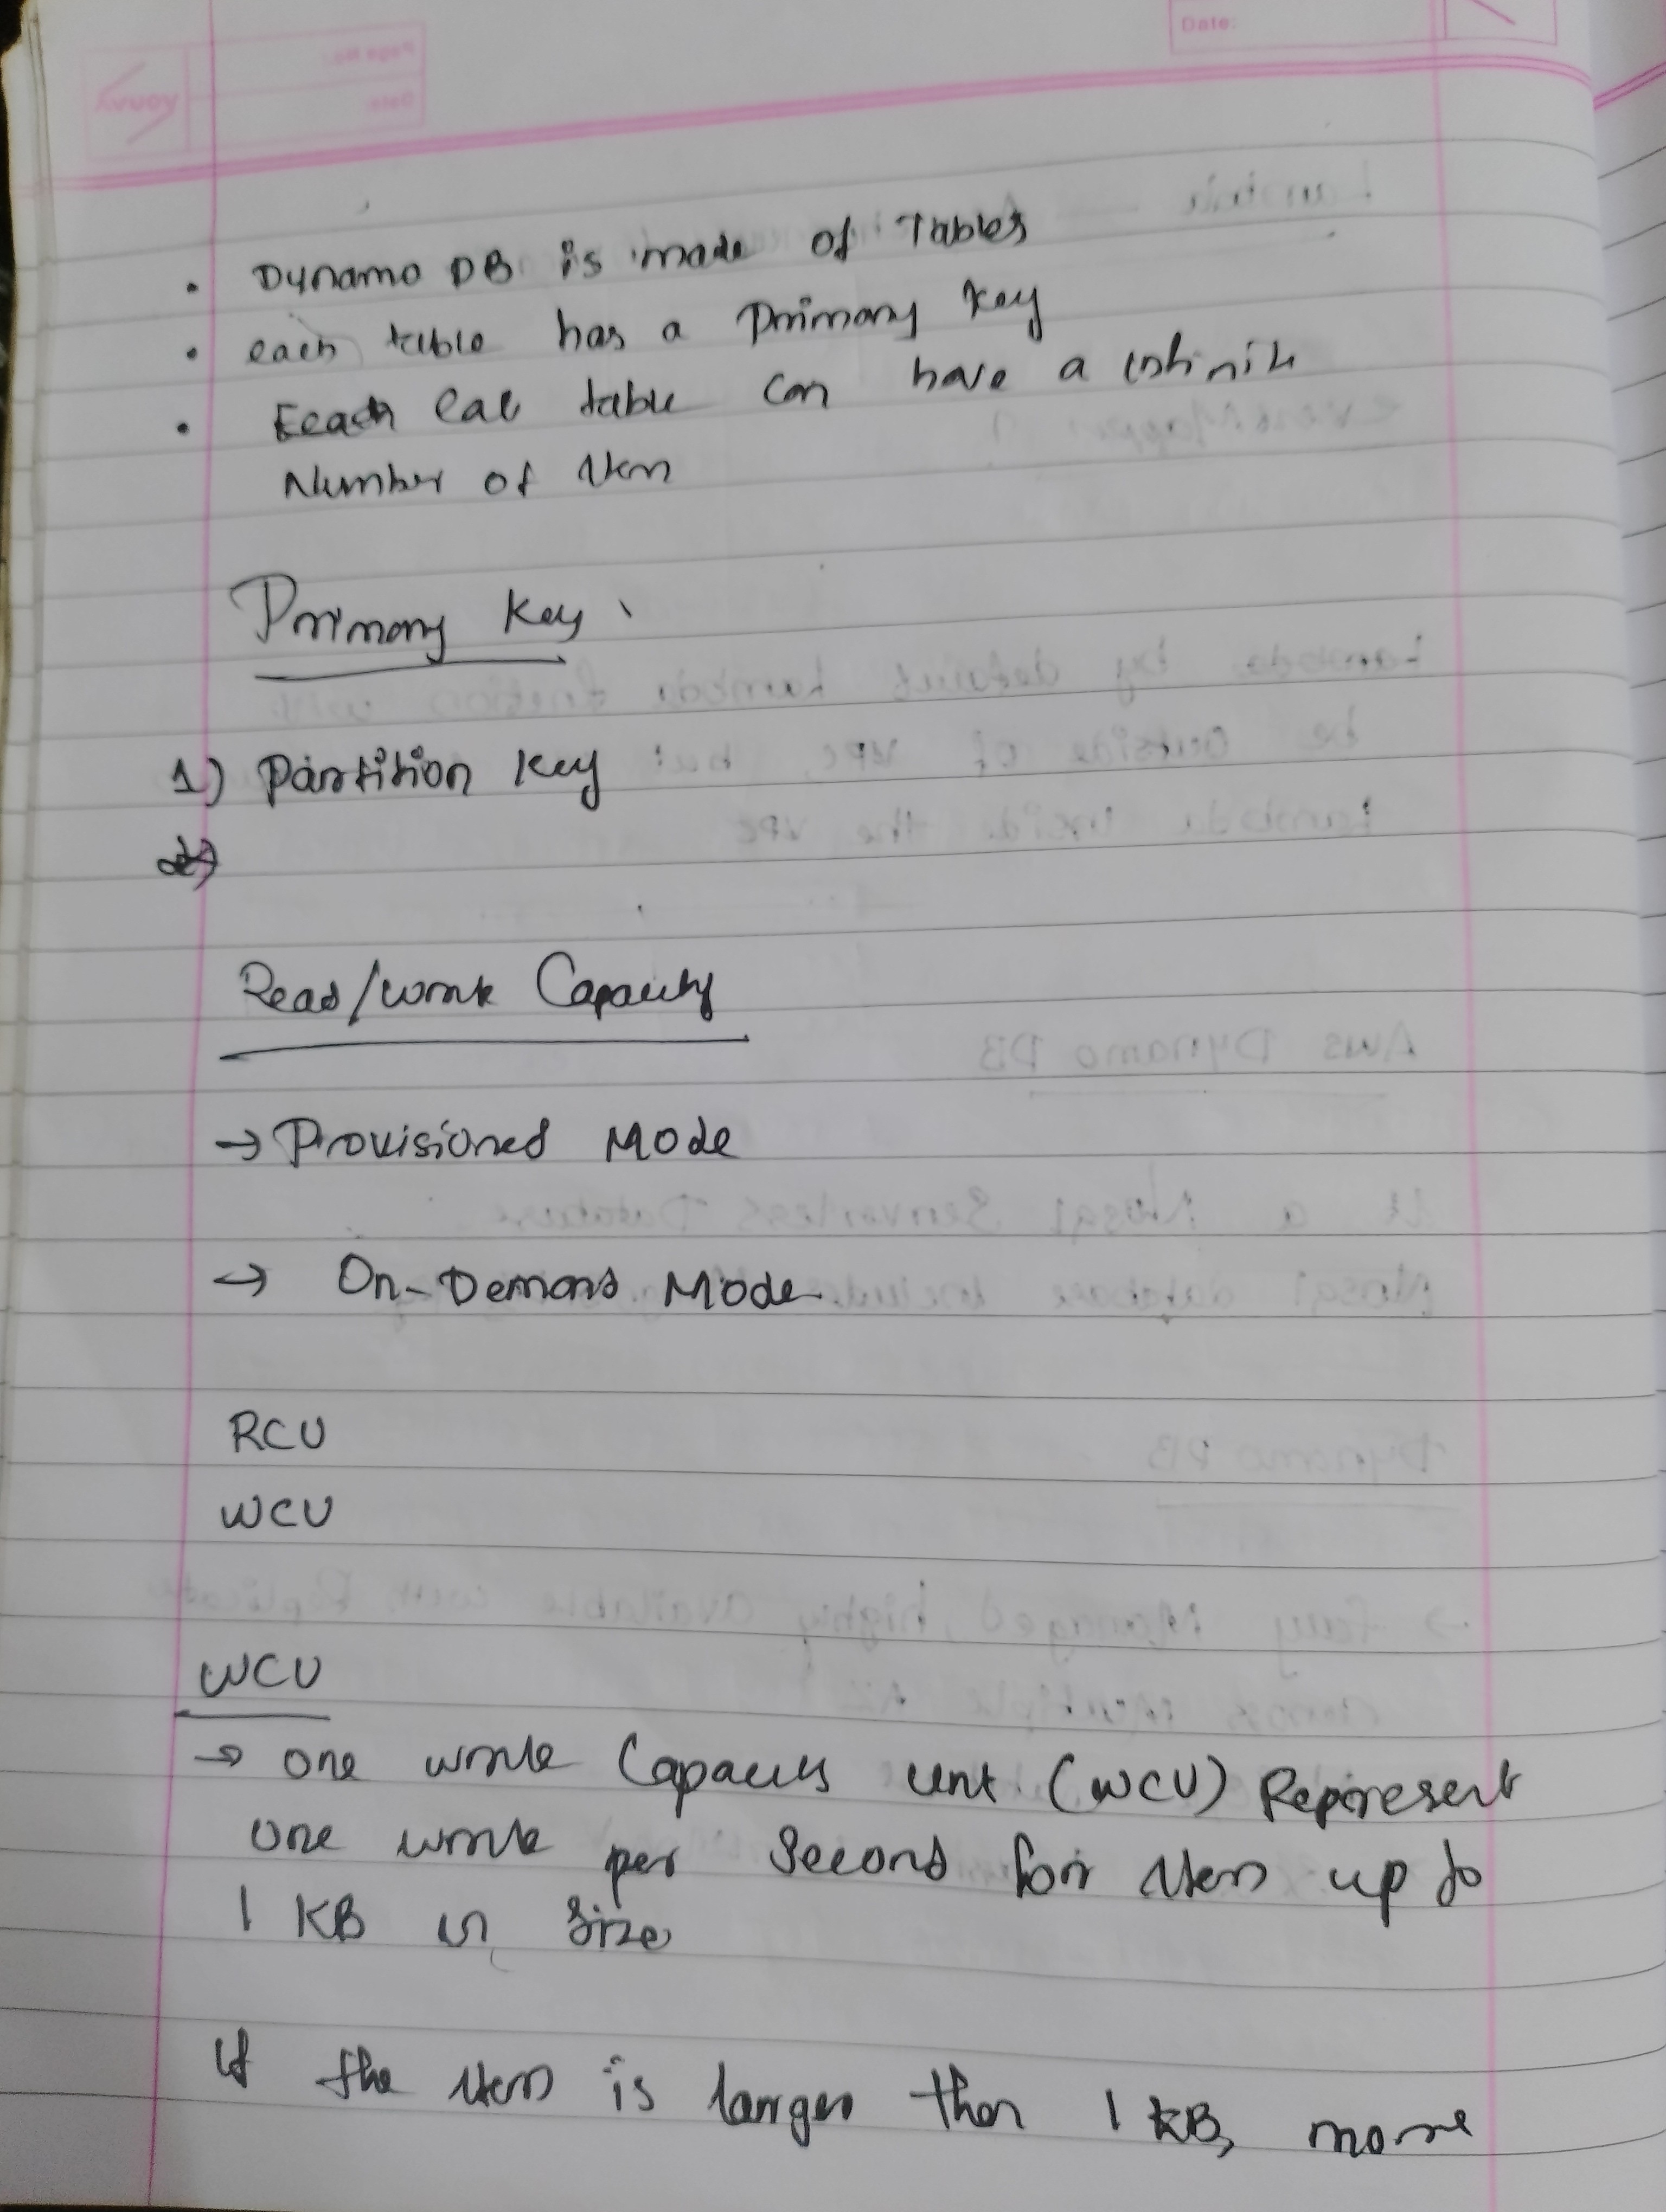 Date:
• Dynamo DB is made of Tables
• each table has a Primary Key
• Eeach table can have a infinite
Number of item
Primary Key
1) Partition Key
Read/write Capacity
→ Provisioned Mode
→ On-Demand Mode
RCU
WCU
WCU
→ one write Capacity unit (WCU) Represent
one write per Second for item up to
1 KB in size
if the item is larger then 1 KB, more